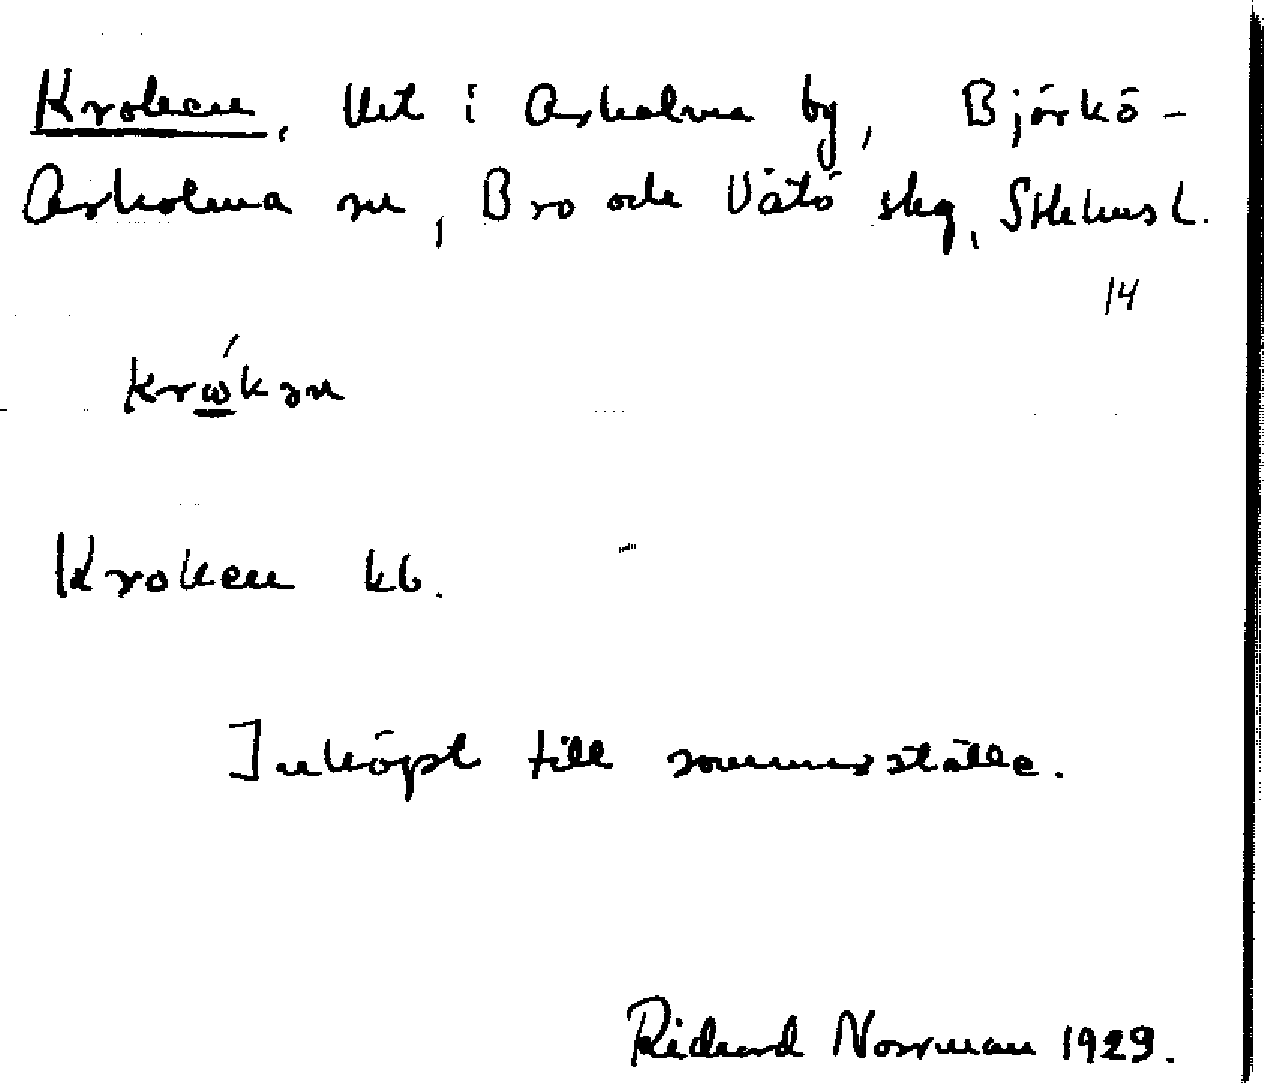 Kroken, lht i Arholma by, Björkö-
Arholma sn, Bro och Vätö skg, Sthlms L.
14
krωkən
Kroken kb.
Inköpt till sommarställe.
Richard Norrman 1929.